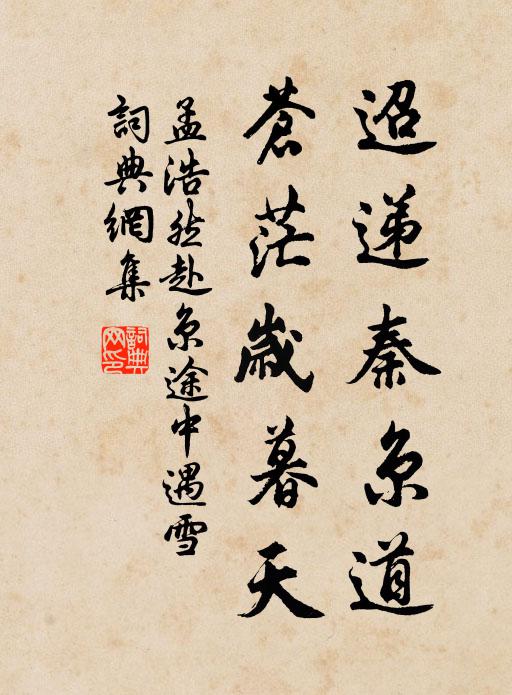 迢遞秦京道
蒼茫歲暮天
孟浩然赴京途中遇雪
詞典網集
詞典網印